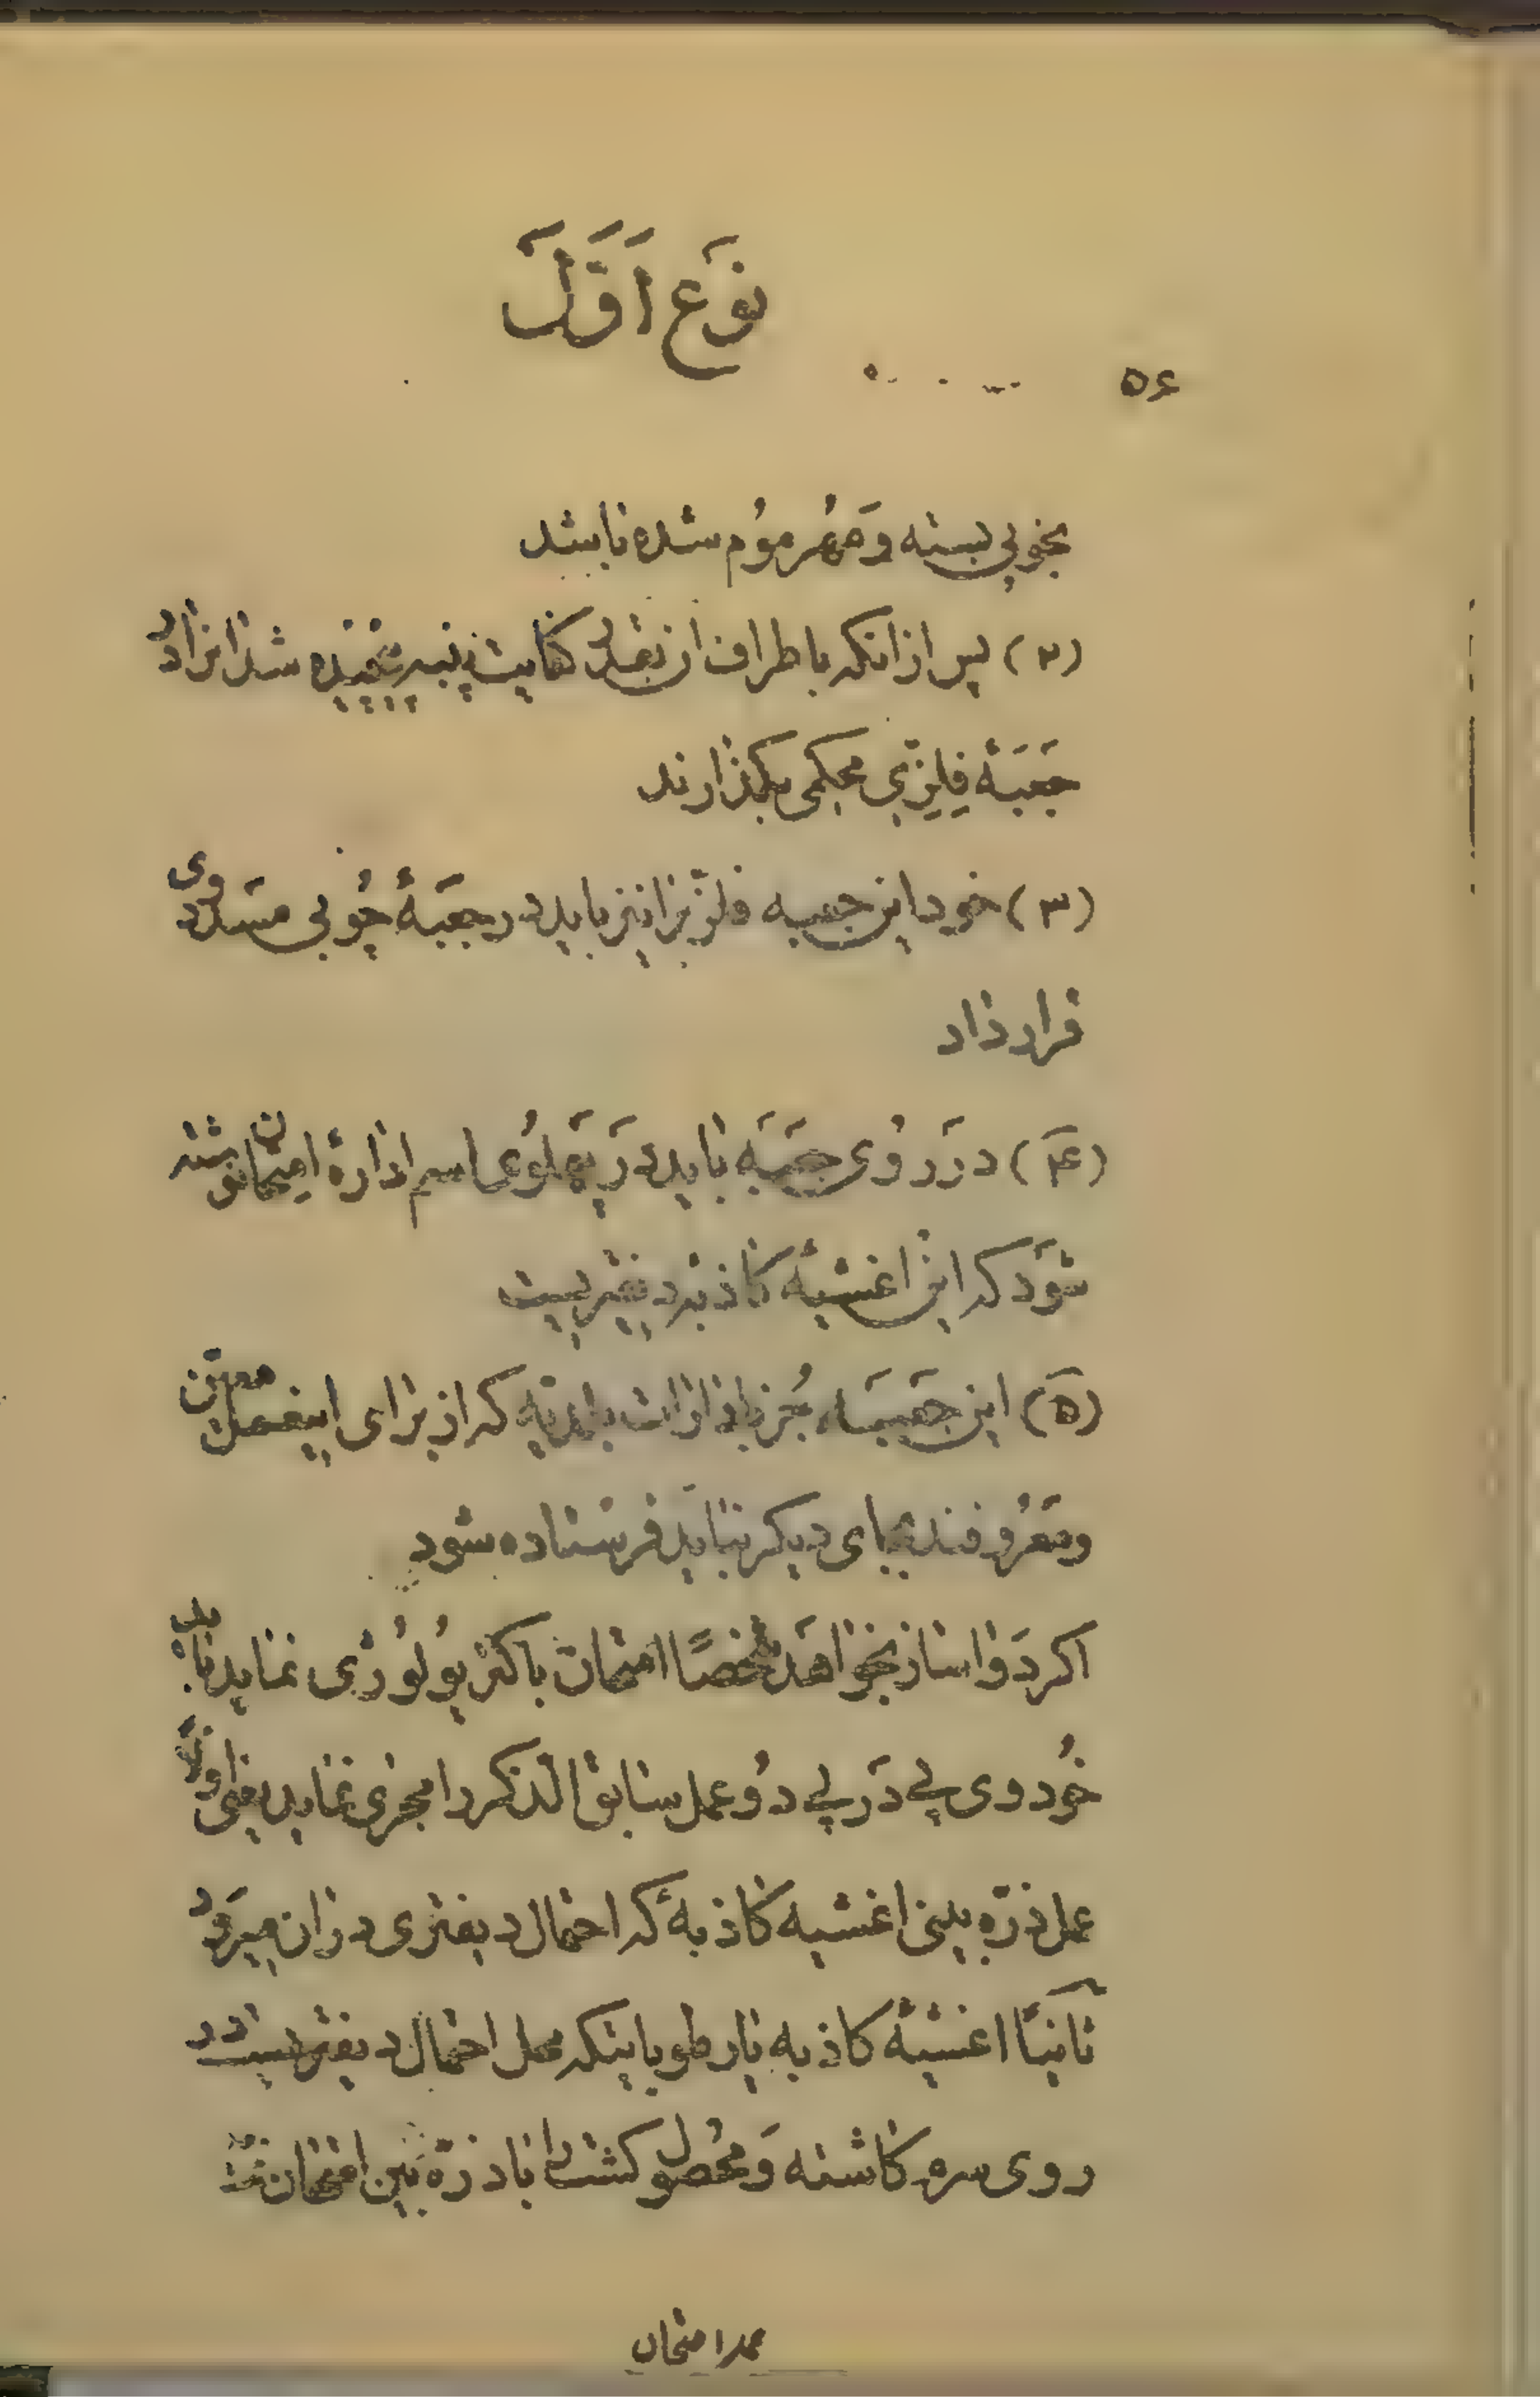 نوع اول
۵۶
بخوبی بسته و مهر موم شده باشد
(۲) پس از انکه باطراف ان بقدر کفایت پنبه پیچیده شد انرا در
جعبهٔ فلزی محکمی بگذارند
(۳) خود این جعبه فلزیرا نیز باید در جعبهٔ چوبی مسدودی
قرار داد
(۴) در روی جعبه باید در پهلوی اسم ادارهٔ امتحان نوشته
شود که این اغشیهٔ کاذبه دیفتریست
(۵) این جعبه بجز بادارات بلدیه که از برای اینعمل معین
و معروفند بجای دیگر نباید فرستاده شود
اکر دواساز بخواهد شخصاً امتحان باکتریولوژی نماید باید
خود وی پی در پی دو عمل سابق الذکر را مجری نماید یعنی اولاً
عمل ذره بینی اغشیه کاذبهٔ که احتمال دیفتری در ان میرود
ثانیاً اغشیهٔ کاذبه یا رطوباتیکه محل احتمال دیفتریست در
روی سرم کاشته و محصول کشت را با ذره بین امتحان
عمدا متحان